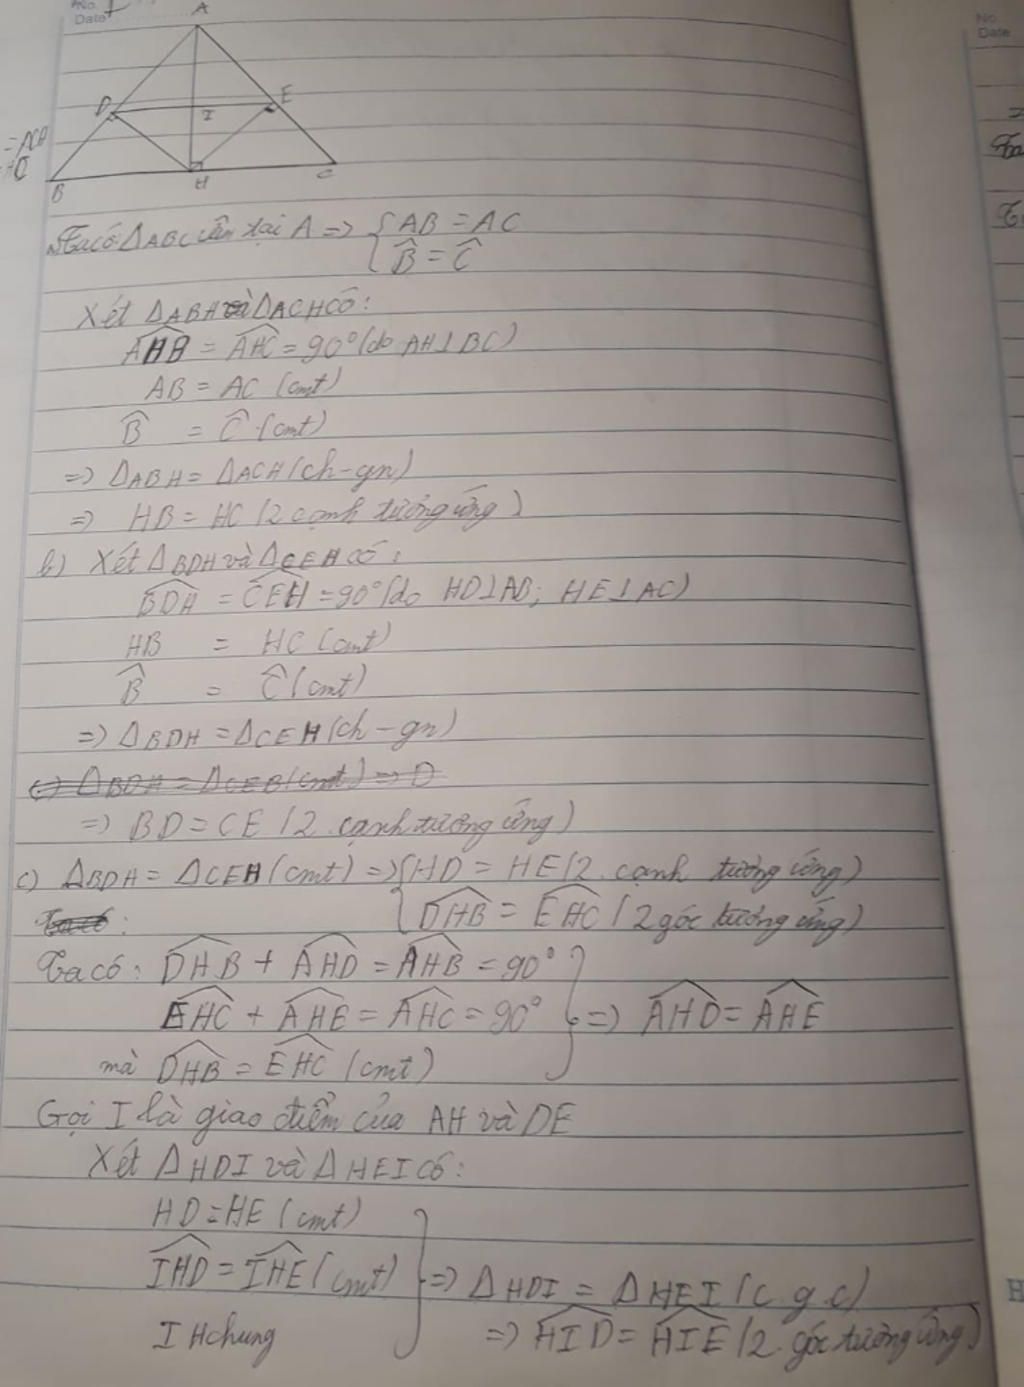 No.
Date
No
Date
A
D
E
I
B
H
C
a) Ta có ΔABC cân tại A => { AB = AC
B̂ = Ĉ
Xét ΔABH và ΔACH có:
AHB = AHC = 90° (do AH⊥BC)
AB = AC (cmt)
B̂ = Ĉ (cmt)
=> ΔABH = ΔACH (ch-gn)
=> HB = HC (2 cạnh tương ứng)
b) Xét ΔBDH và ΔCEH có:
BDH = CEH = 90° (do HD⊥AB; HE⊥AC)
HB = HC (cmt)
B̂ = Ĉ (cmt)
=> ΔBDH = ΔCEH (ch-gn)
c) ΔBDH = ΔCEB (cmt) => D
=> BD = CE (2 cạnh tương ứng)
c) ΔBDH = ΔCEH (cmt) => { HD = HE (2 cạnh tương ứng)
DHB = EHC (2 góc tương ứng)
Ta có: DHB + AHD = AHB = 90°
EHC + AHE = AHC = 90° } => AHD = AHE
mà DHB = EHC (cmt)
Gọi I là giao điểm của AH và DE
Xét ΔHDI và ΔHEI có:
HD = HE (cmt)
IHD = IHE (cmt) } => ΔHDI = ΔHEI (c.g.c)
IH chung => HID = HIE (2 góc tương ứng)